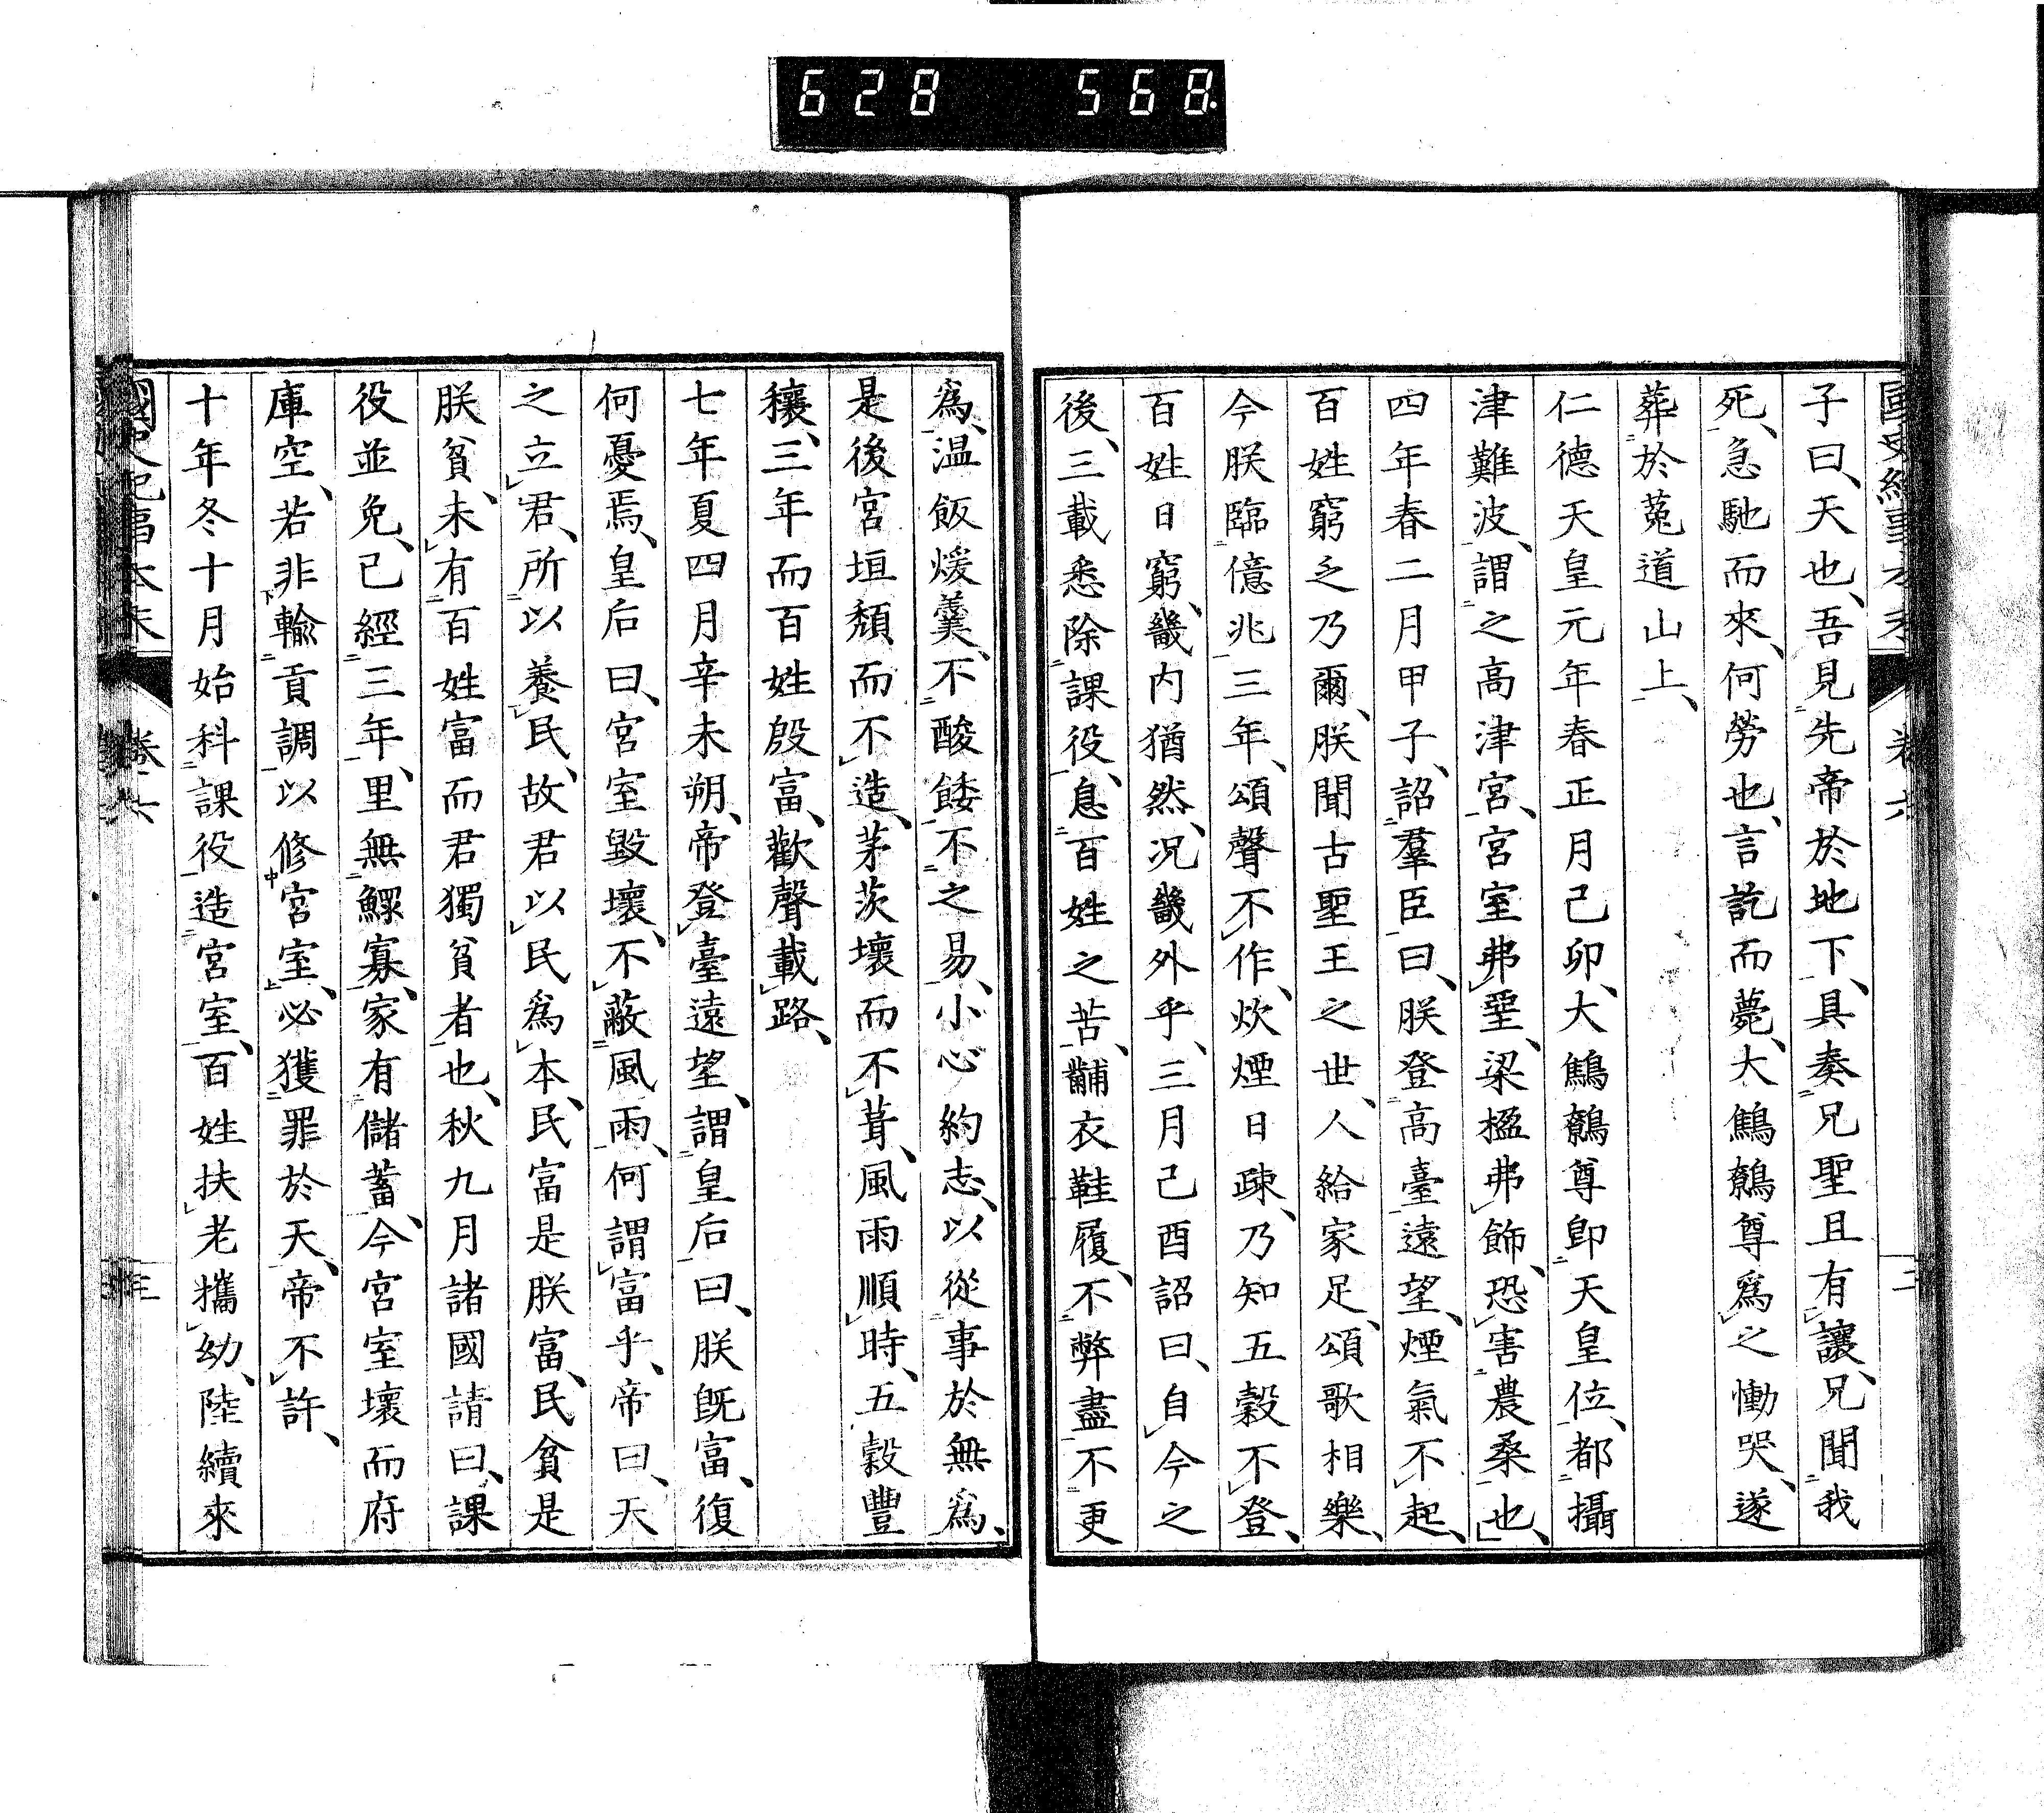 628 568
國史紀事本末 卷六 二
子曰、天也、吾見先帝於地下、具奏兄聖且有讓、兄聞我
死、急馳而來、何勞也、言訖而薨、大鷦鷯尊爲之慟哭、遂
葬於菟道山上、
仁德天皇元年春正月己卯、大鷦鷯尊卽天皇位、都攝
津難波、謂之高津宮、宮室弗堊、梁楹弗飾、恐害農桑也、
四年春二月甲子、詔羣臣曰、朕登高臺遠望、煙氣不起、
百姓窮乏乃爾、朕聞古聖王之世、人給家足、頌歌相樂、
今朕臨億兆三年、頌聲不作、炊煙日疎、乃知五穀不登、
百姓日窮、畿内猶然、况畿外乎、三月己酉詔曰、自今之
後、三載悉除課役、息百姓之苦、黼衣鞋履、不弊盡不更
爲、温飯煖羹、不酸餧不之易、小心約志、以從事於無爲、
是後宮垣頽而不造、茅茨壞而不葺、風雨順時、五穀豐
穰、三年而百姓殷富、歡聲載路、
七年夏四月辛未朔、帝登臺遠望、謂皇后曰、朕既富、復
何憂焉、皇后曰、宮室毀壞、不蔽風雨、何謂富乎、帝曰、天
之立君、所以養民、故君以民爲本、民富是朕富、民貧是
朕貧、未有百姓富而君獨貧者也、秋九月諸國請曰、課
役並免、已經三年、里無鰥寡、家有儲蓄、今宮室壞而府
庫空、若非輸貢調以修宮室、必獲罪於天、帝不許、
十年冬十月始科課役造宮室、百姓扶老攜幼、陸續來
國史紀事本末 卷六 三